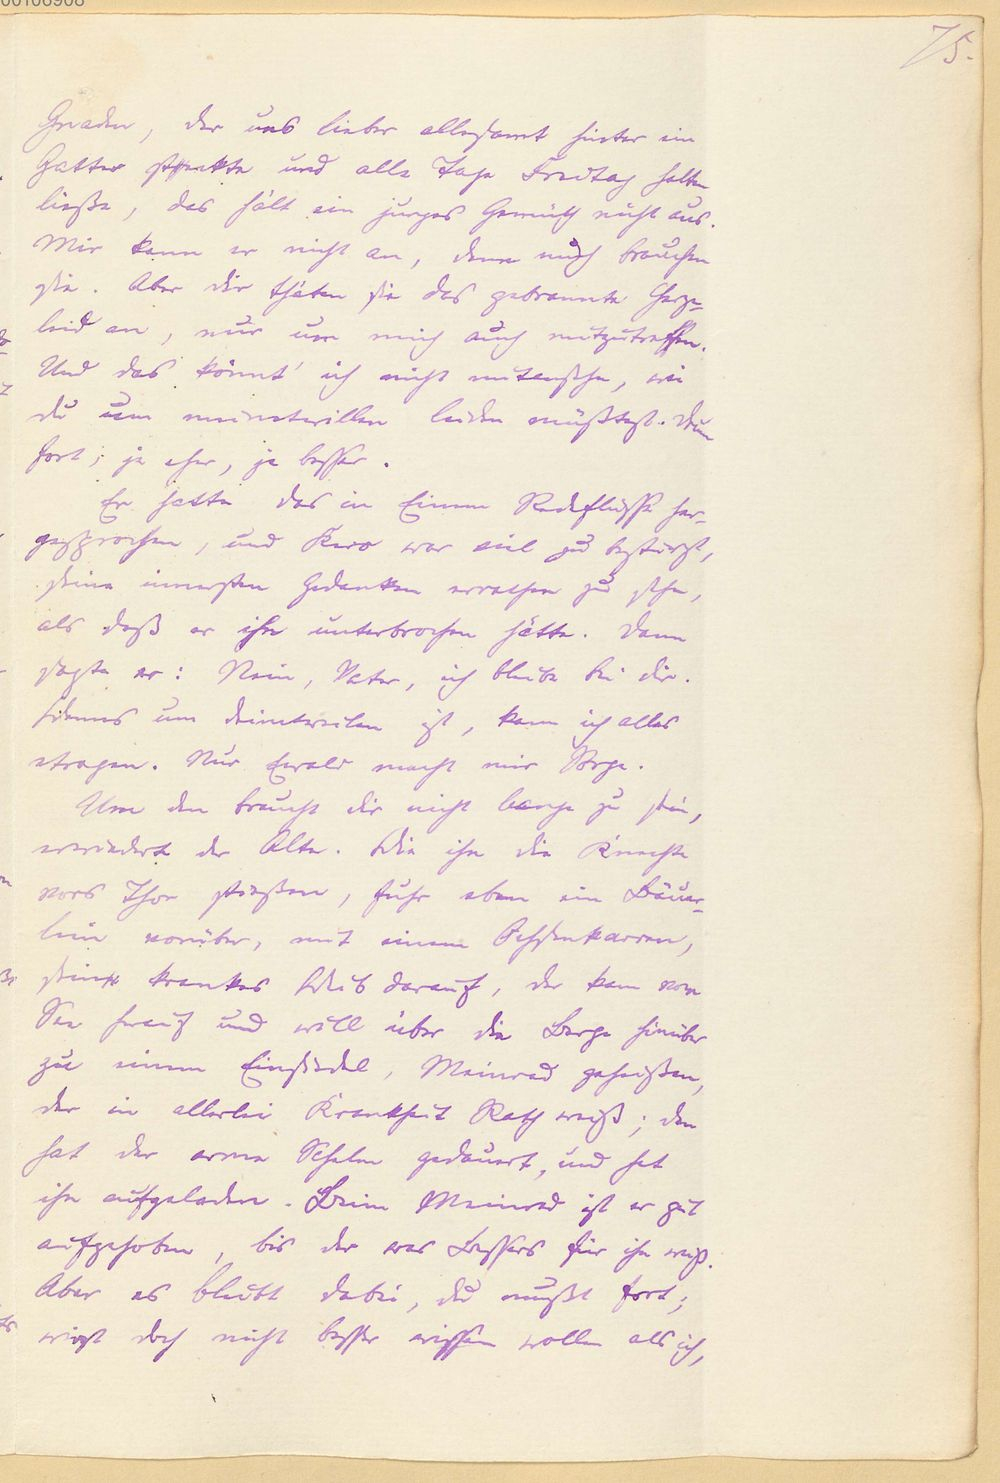 75.
Gnaden, der uns lieber allesamt hinter ein
Gatter steckte und alle Tage Freitag halten
ließe, das hält ein junges Gemüth nicht aus.
Mir kann er nicht an, denn mich brauchen
sie. Aber dir thäten sie das gebrannte Herze-
leid an, nur um mich auch mitzutreffen.
Und das könnt' ich nicht mitansehn, wie
du um meinetwillen leiden müßtest. Drum
fort; je eher, je besser.
Er hatte das in Einem Redeflusse her-
gesprochen, und Kero war viel zu bestürzt,
seine innersten Gedanken errathen zu sehn,
als daß er ihn unterbrochen hätte. Dann
sagte er: Nein, Vater, ich bleibe bei dir.
Wenns um deinetwillen ist, kann ich alles
etragen. Nur Ewald macht mir Sorge.
Um den braucht dir nicht bange zu sein,
erwiederte der Alte. Wie ihn die Knechte
vors Thor stießen, fuhr eben ein Bäuer-
lein vorüber, mit einem Ochsenkarren,
sein krankes Weib darauf, der kam vom
See herauf und will über die Berge hinüber
zu einem Einsiedel, Meinrad geheißen,
der in allerlei Krankheit Rath weiß; den
hat der arme Schelm gedauert, und hat
ihn aufgeladen. Beim Meinrad ist er gut
aufgehoben, bis der was Bessers für ihn weiß.
Aber es bleibt dabei, du mußt fort;
wirst doch nicht besser wissen wollen als ich,